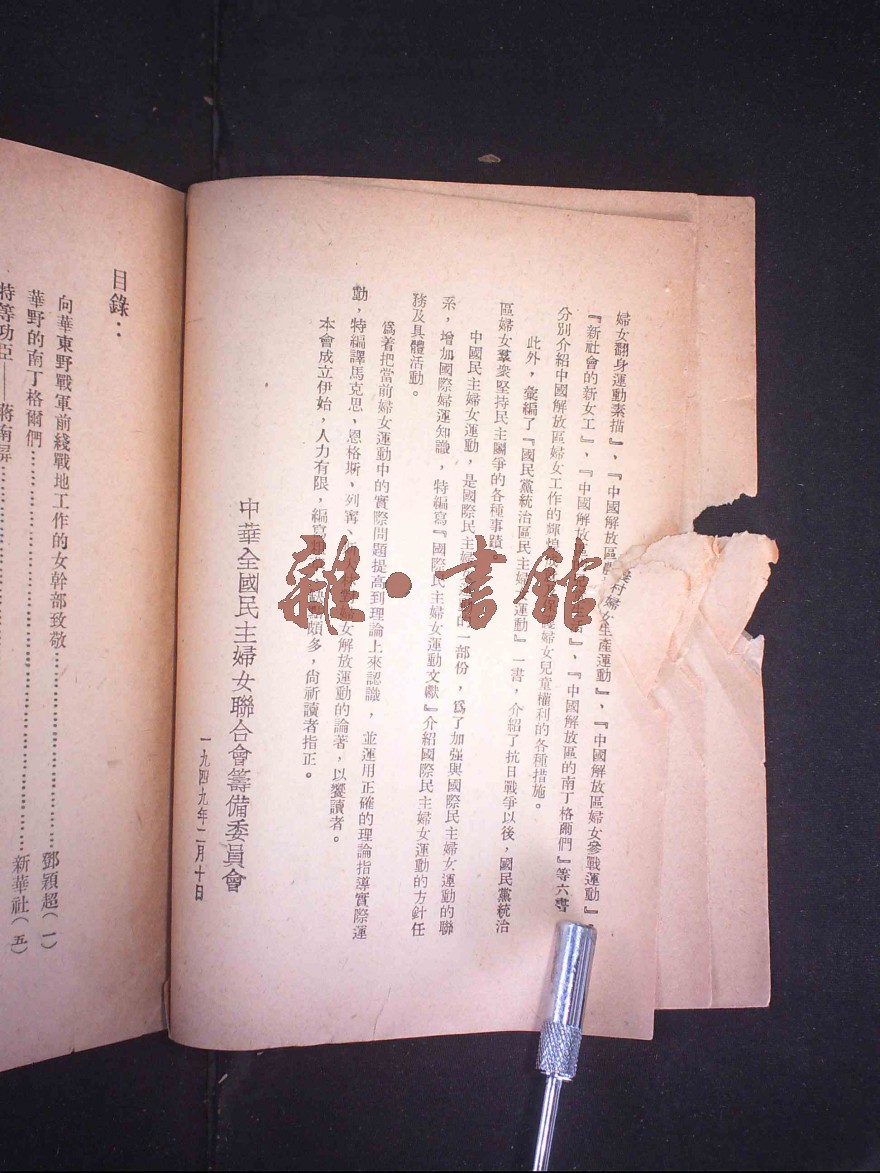 婦女翻身運動素描』、『中國解放區農村婦女生產運動』、『中國解放區婦女參戰運動』
『新社會的新女工』、『中國解放 』、『中國解放區的南丁格爾們』等六書
分別介紹中國解放區婦女工作的輝煌 婦女兒童權利的各種措施。
此外，彙編了『國民黨統治區民主婦 運動』一書，介紹了抗日戰爭以後，國民黨統治
區婦女羣衆堅持民主鬭爭的各種事蹟
中國民主婦女運動，是國際民主婦 的一部份，爲了加强與國際民主婦女運動的聯
系，增加國際婦運知識，特編寫『國際民主婦女運動文獻』介紹國際民主婦女運動的方針任
務及具體活動。
爲着把當前婦女運動中的實際問題提高到理論上來認識，並運用正確的理論指導實際運
動，特編譯馬克思、恩格斯、列寗、 婦女解放運動的論著，以饗讀者。
本會成立伊始，人力有限，編寫 頗多，尙祈讀者指正。
中華全國民主婦女聯合會籌備委員會
一九四九年二月十日
目錄：
向華東野戰軍前綫戰地工作的女幹部致敬……鄧穎超（一）
華野的南丁格爾們……新華社（五）
特等功臣——蔣南屏……
雜·書館